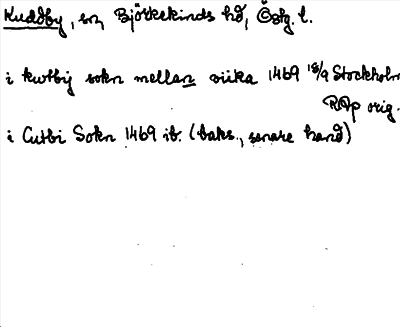 Kuddby, sn, Björkekinds hd, Östg. l.
i kutbij sokn mellan wiika 1469 18/9 Stockholm
RAp orig.
i Cutbi Sokn 1469 ib. (baks., senare hand)